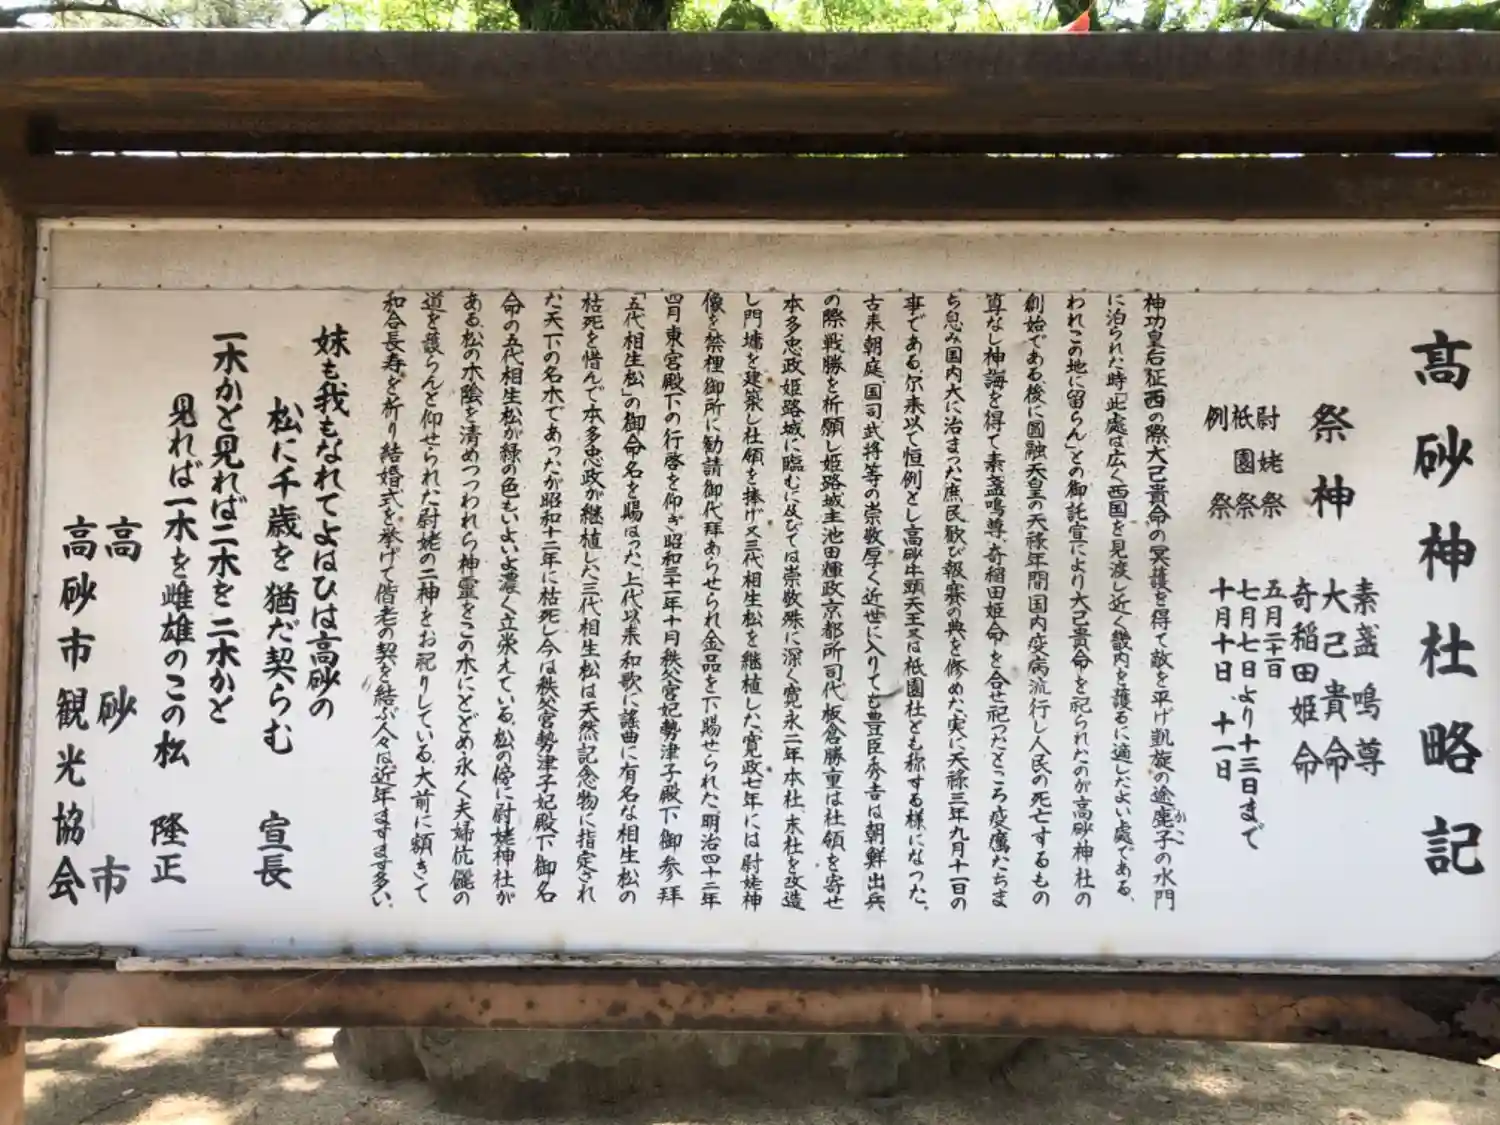 高砂神社略記
祭神
素盞鳴尊
大己貴命
奇稲田姫命
尉姥祭 五月二十一日
祇園祭 七月七日より十三日まで
例祭 十月十日、十一日
神功皇后征西の際大己貴命の冥護を得て敵を平げ凱旋の途鹿子の水門
かこ
に泊られた時「此處は広く西国を見渡し近く畿内を護るに適したよい處である、
われこの地に留らん」との御託宣により大己貴命を祀られたのが高砂神社の
創始である後に圓融天皇の天禄年間国内疫病流行し人民の死亡するもの
算なし神誨を得て素盞鳴尊、奇稲田姫命を合せ祀つたところ疫癘たちま
ち息み国内大に治まつた庶民歓び報賽の典を修めた実に天禄三年九月十一日の
事である、尓来以て恒例とし高砂牛頭天王又は祇園社とも称する様になつた。
古来朝庭、国司、武将等の崇敬厚く近世に入りても豊臣秀吉は朝鮮出兵
の際戦勝を祈願し姫路城主池田輝政京都所司代板倉勝重は社領を寄せ
本多忠政姫路城に臨むに及びては崇敬殊に深く寛永二年本社、末社を改造
し門墉を建築し社領を捧げ又三代相生松を継植した、寛政七年には尉姥神
像を禁裡御所に勧請御代拜あらせられ金品を下賜せられた、明治四十二年
四月東宮殿下の行啓を仰ぎ昭和三十一年十月秩父宮妃勢津子殿下御参拜
「五代相生松」の御命名を賜はつた上代以来和歌に謠曲に有名な相生松の
枯死を惜んで本多忠政が継植した三代相生松は天然記念物に指定され
た天下の名木であつたが昭和十二年に枯死し今は秩父宮勢津子妃殿下御名
命の五代相生松が緑の色もいよいよ濃く立栄えている、松の傍に尉姥神社が
ある、松の木陰を清めつつわれら神霊をこの木にとどめ永く夫婦伉儷の
道を護らんと仰せられた尉姥の二神をお祀りしている、大前に額きて
和合長寿を祈り結婚式を挙げて偕老の契を結ぶ人々は近年ますます多い、
妹も我もなれてよはひは高砂の
松に千歳を猶だ契らむ 宣長
一木かと見れば二木を二木かと
見れば一木を雌雄のこの松 隆正
高砂市
高砂市観光協会